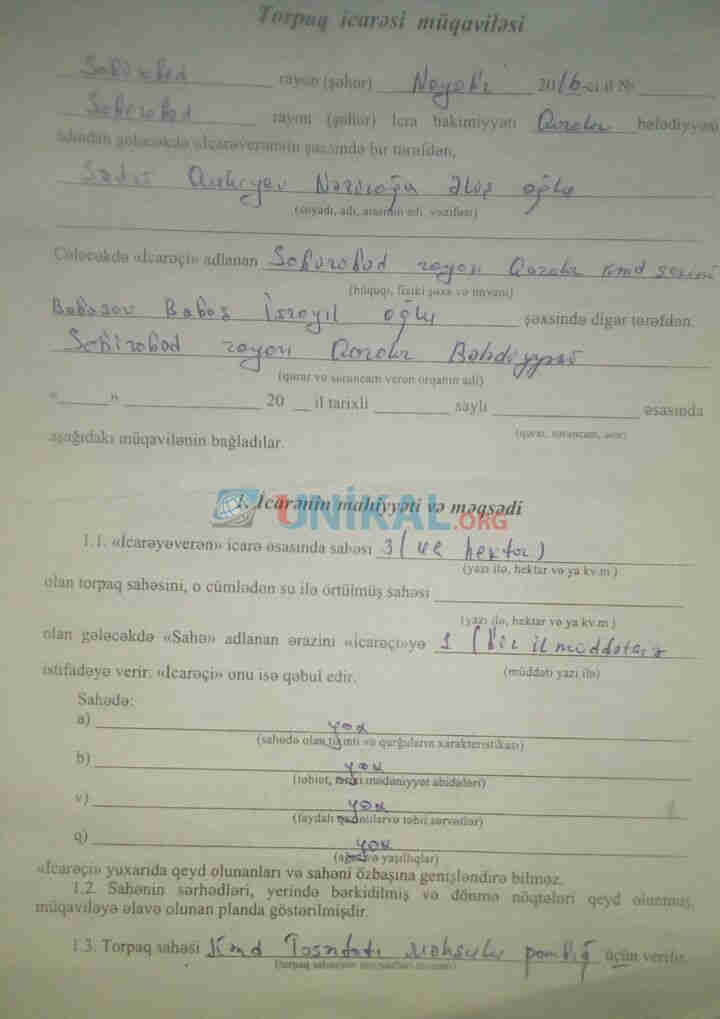 Torpaq icarəsi müqaviləsi
Sabirabad rayon (şəhər) Noyabr 2016-cı il №
Sabirabad rayon (şəhər) İcra hakimiyyəti Qaralar bələdiyyəsi
adından gələcəkdə «İcarəverənin şəxsində bir tərəfdən,
oğlu
(soyadı, adı, atasının adı, vəzifəsi)
Gələcəkdə «İcarəçi» adlanan Sabirabad rayon Qaralar kənd sakini
(hüquqi, fiziki şəxs və ünvanı)
Babasov Babaş İsrayıl oğlu şəxsində digər tərəfdən.
Sabirabad rayon Qaralar Bələdiyyəsi
(qərar və sərəncam verən orqanın adı)
«____» ____ 20 __ il tarixli ____ saylı ____ əsasında
(qərar, sərəncam, əmr)
aşağıdakı müqavilənin bağladılar.
UNİKAL.ORG
1. İcarənin mahiyyəti və məqsədi
1.1. «İcarəyəverən» icarə əsasında sahəsi 3 (üç hektar)
(yazı ilə, hektar və ya kv.m )
olan torpaq sahəsini, o cümlədən su ilə örtülmüş sahəsi
(yazı ilə, hektar və ya kv.m )
olan gələcəkdə «Sahə» adlanan ərazini «icarəçi»yə 1 (bir il müddətinə
istifadəyə verir. «İcarəçi» onu isə qəbul edir. (müddəti yazı ilə)
Sahədə:
a) yox
(sahədə olan tikinti və qurğuların xarakteristikası)
b) yox
(təbiət, tarixi mədəniyyət abidələri)
v) yox
(faydalı qazıntılar və təbii sərvətlər)
q) yox
(ağac və yaşıllıqlar)
«İcarəçi» yuxarıda qeyd olunanları və sahəni özbaşına genişləndirə bilməz.
1.2. Sahənin sərhədləri, yerində bərkidilmiş və dönmə nöqtələri qeyd olunmuş,
müqaviləyə əlavə olunan planda göstərilmişdir.
1.3. Torpaq sahəsi Kənd Təsərüfatı məhsulu pambığ üçün verilir.